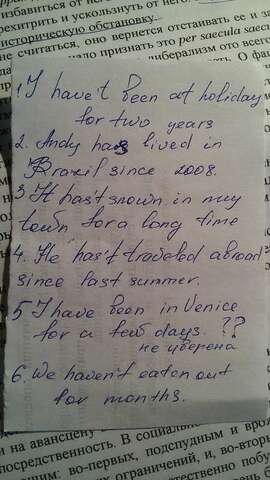 избавиться от него.
рехитрить и ускользнуть от него.
историческую обстановку.
не считаться, оно вернется отстаивать ее и
надо признать это per saecula saecu
либерализм ото всего
1. I have't been at holiday
for two years
2. Andy has lived in
Brazil since 2008.
3 It has't snown in my
town for a long time
4. He has't traveled abroad
since last summer.
5 I have been in Venice
for a few days. ??
не уверена
6. We haven't eaten out
for months.
и на авансцену
посредственность. В социально
щим: во-первых, подспудным и вро
ких ограничений, и, во-вторы
естественно побу